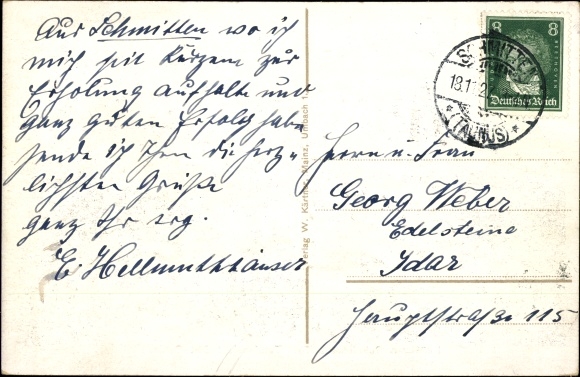 Aus Schmitten wo ich
mich seit kurzem zur
Erholung aufhalte und
ganz guten Erfolg habe
sende ich Ihnen die herz-
lichsten Grüße
ganz Ihr erg.
E. Hellmuthhäuser
Verlag W. Kärtner, Mainz,
8 8
BEETHOVEN
Deutsches Reich
SCHMITTEN
(TAUNUS)
Herrn u. Frau
Georg Weber
Edelsteine
Idar
Hauptstraße 115